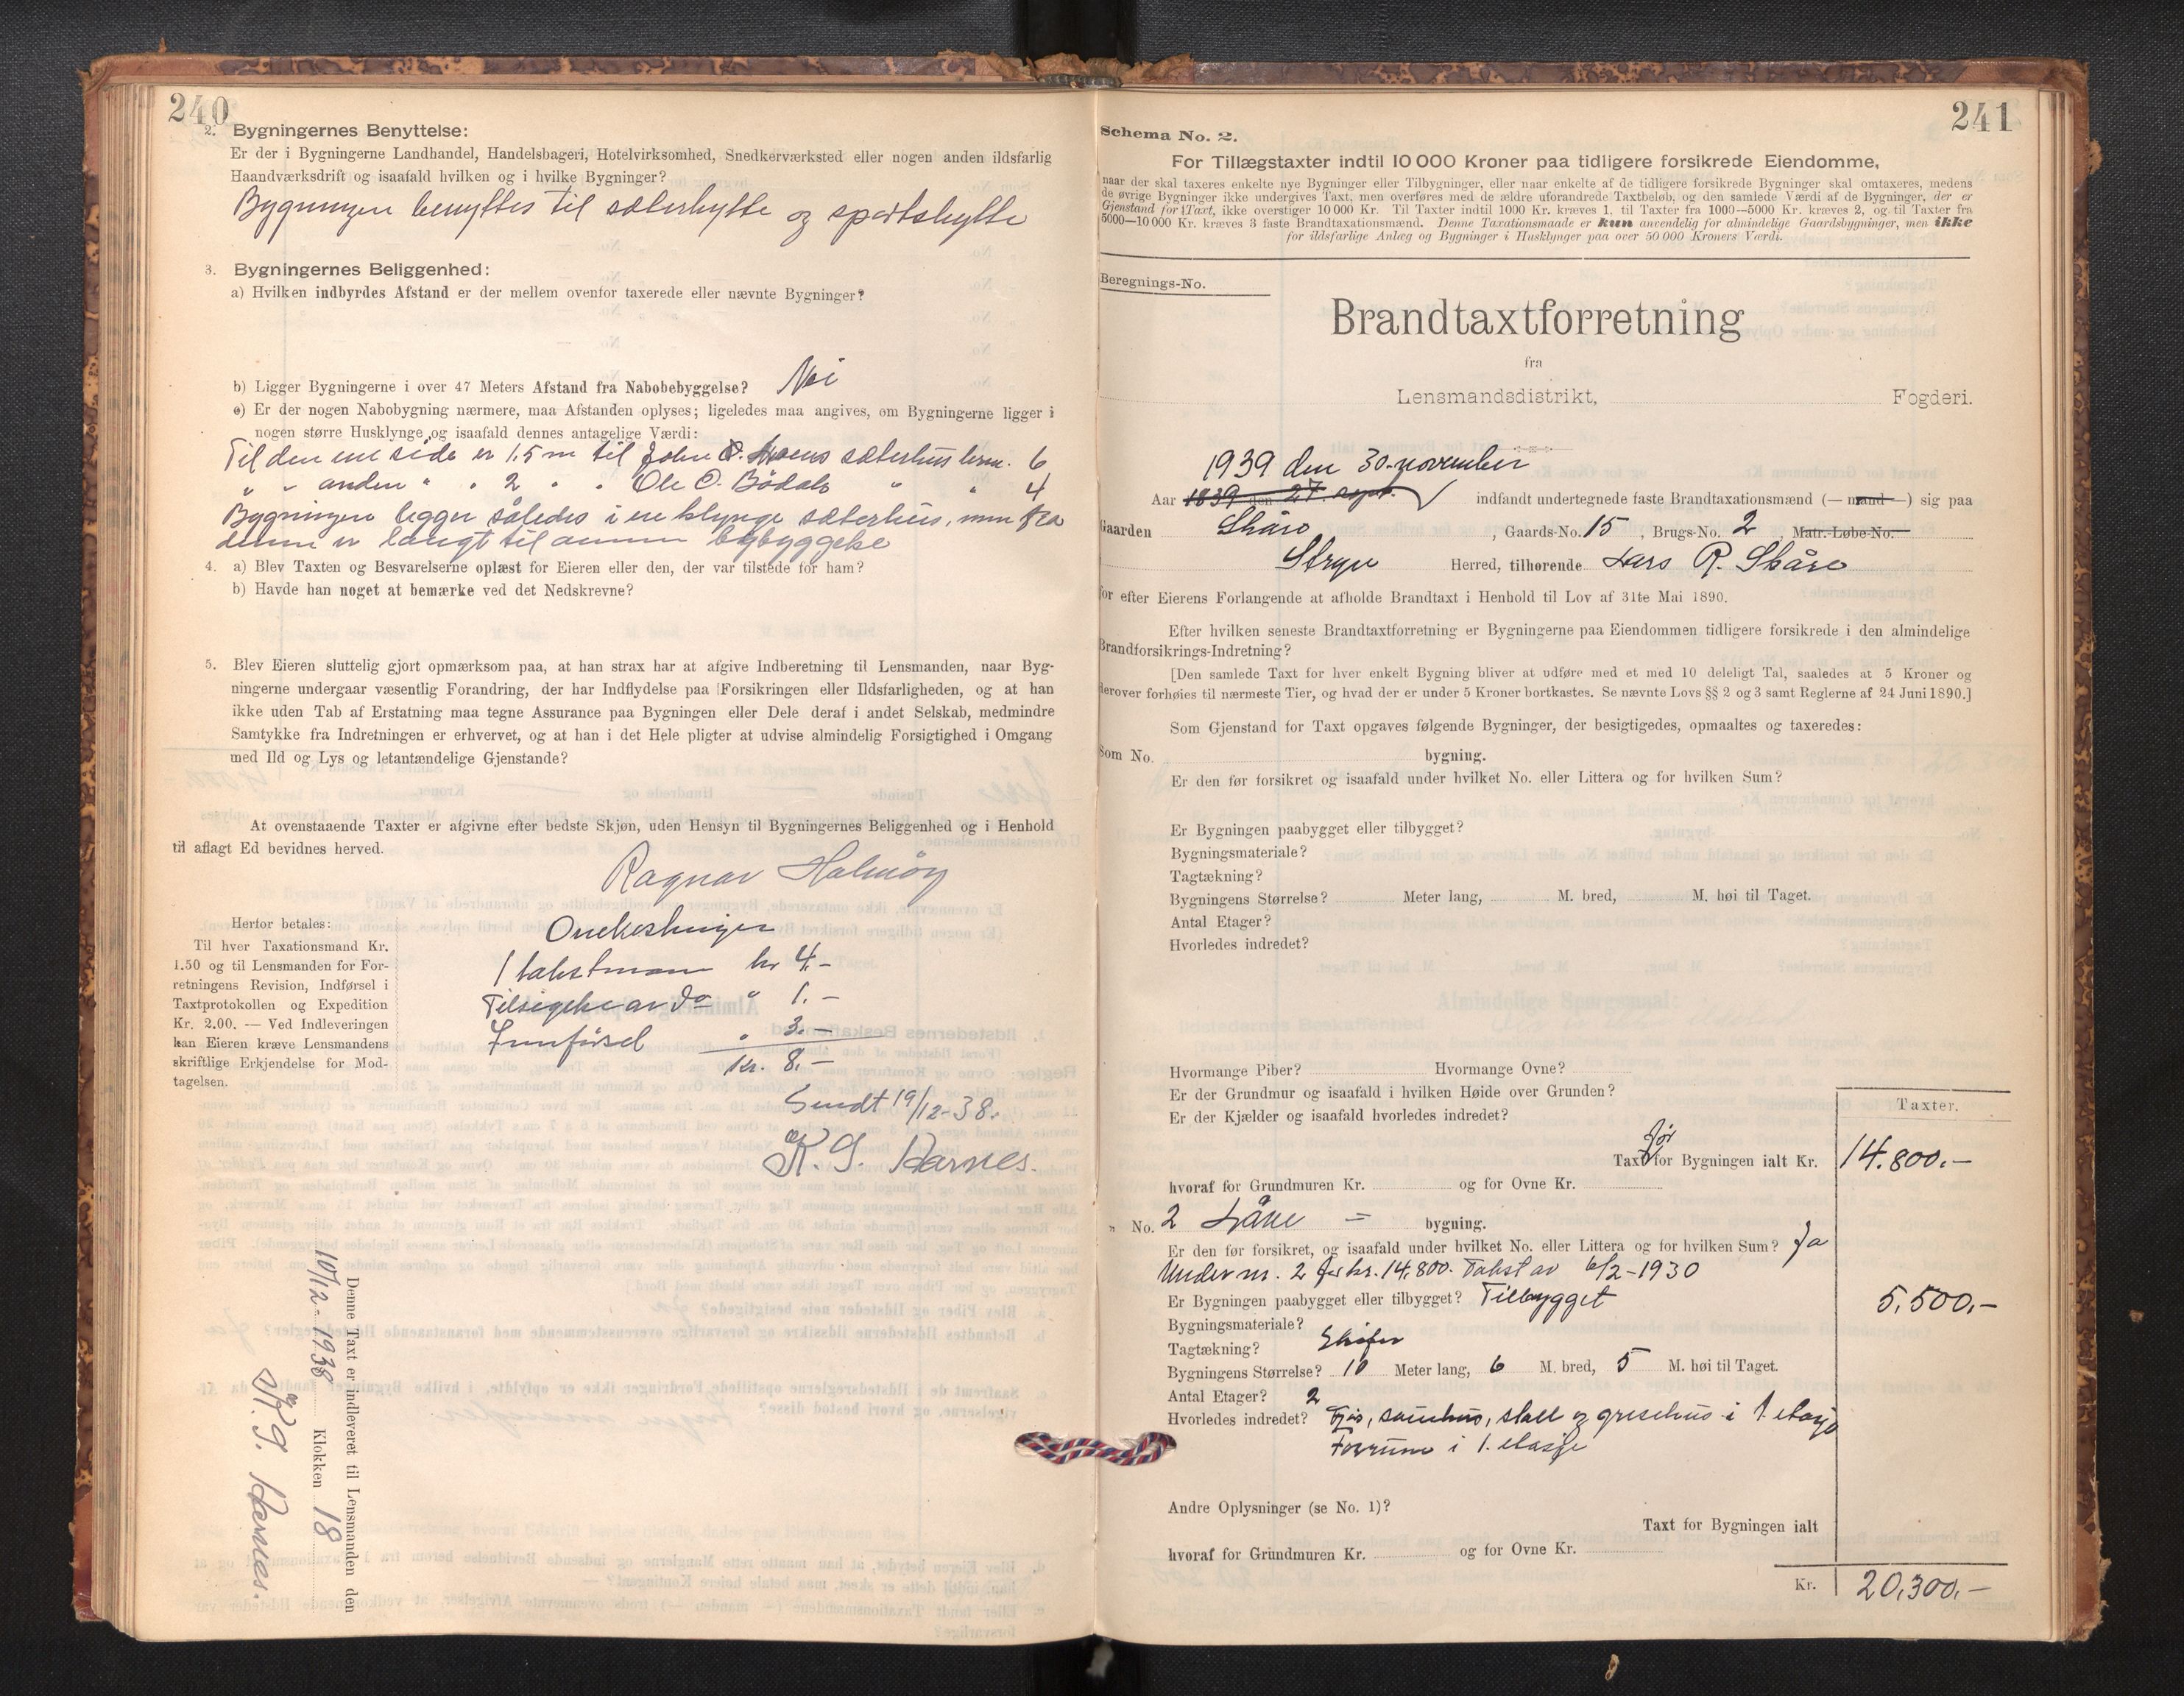 240
2. Bygningernes Benyttelse:
Er der i Bygningerne Landhandel, Handelsbageri, Hotelvirksomhed, Snedkerværksted eller nogen anden ildsfarlig
Haandværksdrift og isaafald hvilken og i hvilke Bygninger?
Bygningen benyttes til sæterhytte og sportshytte
3. Bygningernes Beliggenhed:
a) Hvilken indbyrdes Afstand er der mellem ovenfor taxerede eller nævnte Bygninger?
b) Ligger Bygningerne i over 47 Meters Afstand fra Nabobebyggelse? Nei
c) Er der nogen Nabobygning nærmere, maa Afstanden oplyses; ligeledes maa angives, om Bygningerne ligger i
nogen større Husklynge og isaafald dennes antagelige Værdi:
Til den ene side er 1.5 m til John O. sæterhus brnr. 6
" " anden " " 2 " " Ole O. Bödals " " 4
Bygningen ligger således i en klynge sæterhus, men fra
denne er langt til annen bebyggelse
4. a) Blev Taxten og Besvarelserne oplæst for Eieren eller den, der var tilstede for ham?
b) Havde han noget at bemærke ved det Nedskrevne?
5. Blev Eieren sluttelig gjort opmærksom paa, at han strax har at afgive Indberetning til Lensmanden, naar Byg-
ningerne undergaar væsentlig Forandring, der har Indflydelse paa Forsikringen eller Ildsfarligheden, og at han
ikke uden Tab af Erstatning maa tegne Assurance paa Bygningen eller Dele deraf i andet Selskab, medmindre
Samtykke fra Indretningen er erhvervet, og at han i det Hele pligter at udvise almindelig Forsigtighed i Omgang
med Ild og Lys og letantændelige Gjenstande?
At ovenstaaende Taxter er afgivne efter bedste Skjøn, uden Hensyn til Bygningernes Beliggenhed og i Henhold
til aflagt Ed bevidnes herved.
Ragnar Holmöy
Herfor betales:
Til hver Taxationsmand Kr.
1.50 og til Lensmanden for For-
retningens Revision, Indførsel i
Taxtprotokollen og Expedition
Kr. 2.00. — Ved Indleveringen
kan Eieren kræve Lensmandens
skriftlige Erkjendelse for Mod-
tagelsen.
Omkostninger
1 takstmann kr 4.-
Tilsigelse av do " 1.-
Innförsel " 3.-
Kr. 8.-
Sendt 19/12-38.
K. G. Karnes.
Denne Taxt er indleveret til Lensmanden den
10/12-1938 Klokken 18
K. G. Karnes.
241
Schema No. 2.
For Tillægstaxter indtil 10 000 Kroner paa tidligere forsikrede Eiendomme,
naar der skal taxeres enkelte nye Bygninger eller Tilbygninger, eller naar enkelte af de tidligere forsikrede Bygninger skal omtaxeres, medens
de øvrige Bygninger ikke undergives Taxt, men overføres med de ældre uforandrede Taxtbeløb, og den samlede Værdi af de Bygninger, der er
Gjenstand for Taxt, ikke overstiger 10 000 Kr. Til Taxter indtil 1000 Kr. kræves 1, til Taxter fra 1000—5000 Kr. kræves 2, og til Taxter fra
5000—10 000 Kr. kræves 3 faste Brandtaxationsmænd. Denne Taxationsmaade er kun anvendelig for almindelige Gaardsbygninger, men ikke
for ildsfarlige Anlæg og Bygninger i Husklynger paa over 50 000 Kroners Værdi.
Beregnings-No.
Brandtaxtforretning
fra
Lensmandsdistrikt, Fogderi.
1939 den 30. november
Aar 1839 den 27. sept. indfandt undertegnede faste Brandtaxationsmænd (— mand —) sig paa
Gaarden Skåre , Gaards-No. 15 , Brugs-No. 2 , Matr.-Løbe-No.
Stryn Herred, tilhørende Lars R. Skåre
for efter Eierens Forlangende at afholde Brandtaxt i Henhold til Lov af 31te Mai 1890.
Efter hvilken seneste Brandtaxtforretning er Bygningerne paa Eiendommen tidligere forsikrede i den almindelige
Brandforsikrings-Indretning?
[Den samlede Taxt for hver enkelt Bygning bliver at udføre med et med 10 deleligt Tal, saaledes at 5 Kroner og
derover forhøies til nærmeste Tier, og hvad der er under 5 Kroner bortkastes. Se nævnte Lovs §§ 2 og 3 samt Reglerne af 24 Juni 1890.]
Som Gjenstand for Taxt opgaves følgende Bygninger, der besigtigedes, opmaaltes og taxeredes:
Som No. bygning.
Er den før forsikret og isaafald under hvilket No. eller Littera og for hvilken Sum?
Er Bygningen paabygget eller tilbygget?
Bygningsmateriale?
Tagtækning?
Bygningens Størrelse? Meter lang, M. bred, M. høi til Taget.
Antal Etager?
Hvorledes indredet?
Hvormange Piber? Hvormange Ovne?
Er der Grundmur og isaafald i hvilken Høide over Grunden?
Er der Kjælder og isaafald hvorledes indredet?
Taxter.
för
Taxt for Bygningen ialt Kr. 14.800.-
hvoraf for Grundmuren Kr. og for Ovne Kr.
" No. 2 Låve - bygning.
Er den før forsikret, og isaafald under hvilket No. eller Littera og for hvilken Sum? Ja
Under nr. 2 for kr. 14.800. Takst av 6/2-1930
Er Bygningen paabygget eller tilbygget? Tilbygget 5.500,-
Bygningsmateriale?
Tagtækning? Skifer
Bygningens Størrelse? 10 Meter lang, 6 M. bred, 5 M. høi til Taget.
Antal Etager? 2
Hvorledes indredet? Fjös, sauehus, stall og grisehus i 1. etasje
Forrum i 1. etasje
Andre Oplysninger (se No. 1)?
Taxt for Bygningen ialt
hvoraf for Grundmuren Kr. og for Ovne Kr.
Kr. 20,300.-